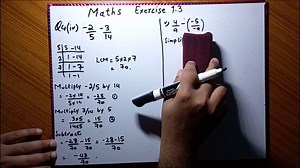 Maths Exercise 1.3
Q4(iv) -2/5 -3/14
5 | 5 - 14
2 | 1 - 14
7 | 1 - 7
1 - 1
LCM = 5x2x7
= 70.
Multiply -2/5 by 14
-2x14/5x14 = -28/70 ①
Multiply 3/14 by 5
3x5/14x5 = 15/70 ②
Subtract
-28/70 - 15/70 = -28-15/70
= -43/70
4/9 - (-5/-9)